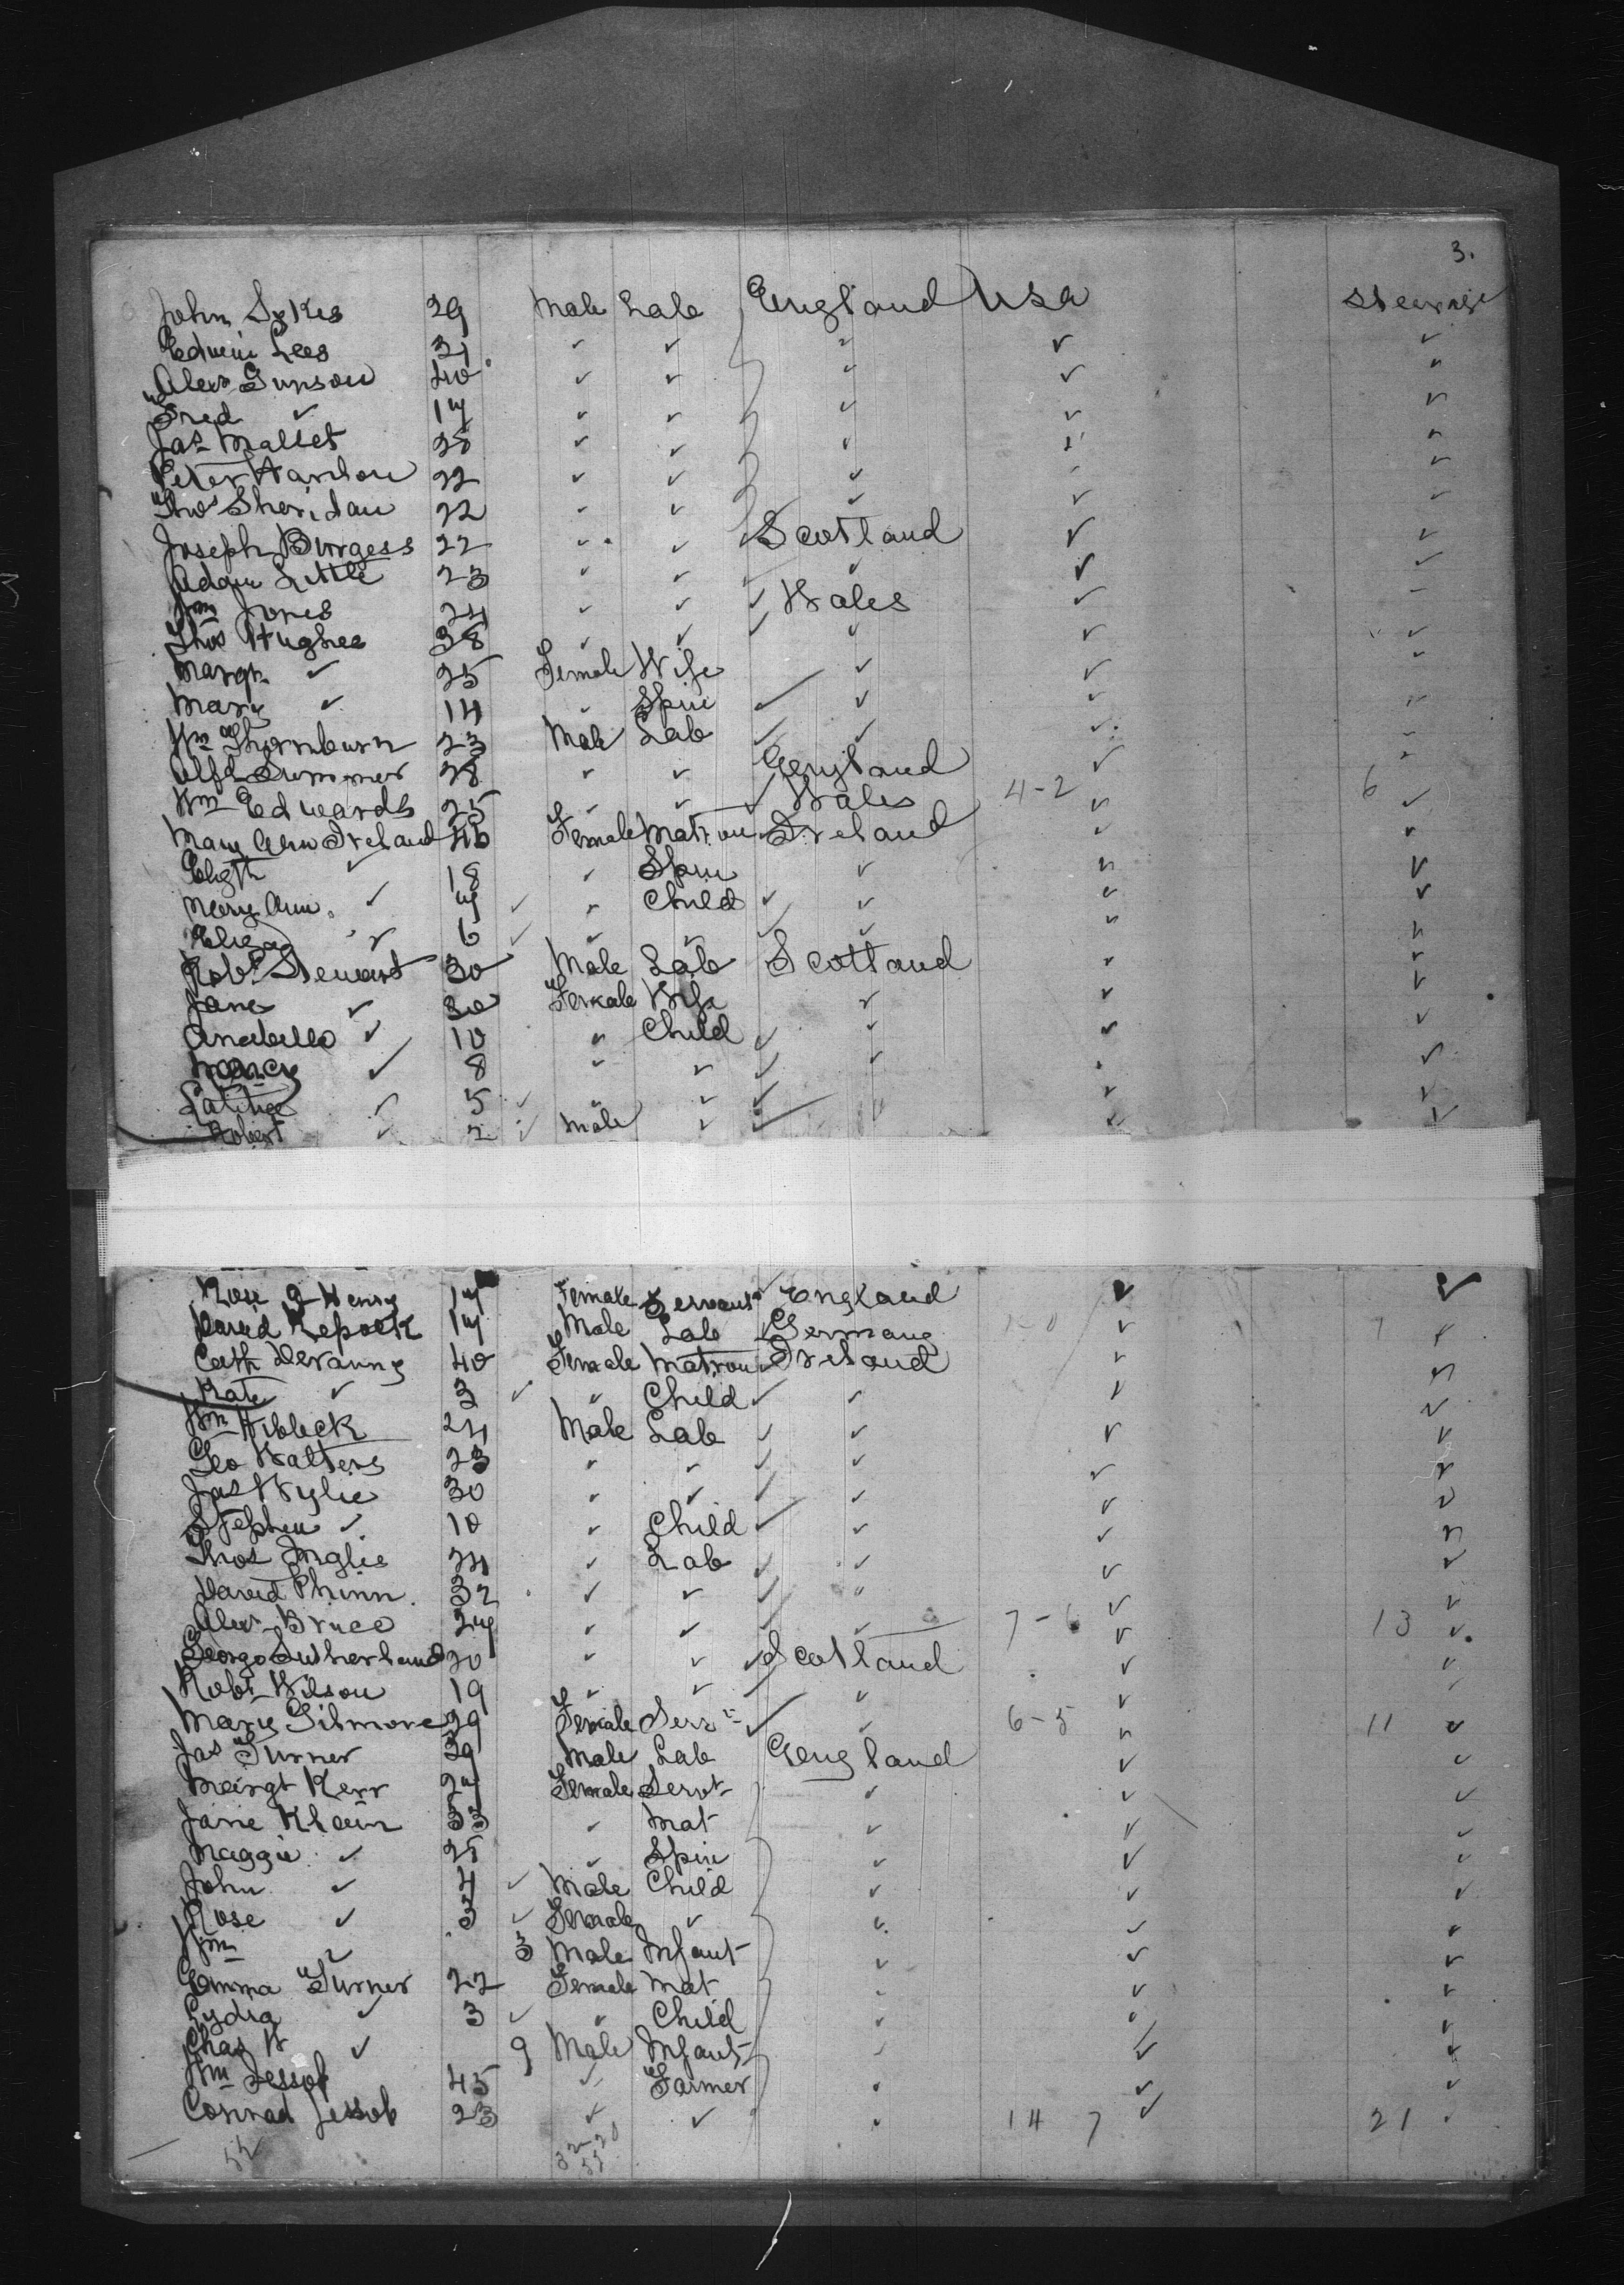 3.
John Sykes 29 Male Lab England USA Steerage
Edwin Lees 31 ✓ ✓ ✓ ✓ ✓
Alexr Simpson 40 ✓ ✓ ✓ ✓ ✓
Fred ✓ 17 ✓ ✓ ✓ ✓ ✓
Jas Mallet 28 ✓ ✓ ✓ ✓ ✓
Peter Hanlon 22 ✓ ✓ ✓ ✓ ✓
Thos Sheridan 22 ✓ ✓ ✓ ✓ ✓
Joseph Burgess 22 ✓ ✓ Scotland ✓ ✓
Adam Little 23 ✓ ✓ ✓ ✓ ✓
Wm Jones 24 ✓ ✓ Wales ✓ ✓
Thos Hughes 38 ✓ ✓ ✓ ✓ ✓
Margt ✓ 25 Female Wife ✓ ✓ ✓
Mary ✓ 14 ✓ Spin ✓ ✓ ✓
Wm Thornburn 23 Male Lab ✓ ✓ ✓
Alfd Summer 28 ✓ ✓ England ✓ ✓
Wm Edwards 25 ✓ ✓ Wales 4-2 ✓ 6 ✓
Mary Ann Ireland 46 Female Matron Ireland ✓ ✓
Elizth ✓ 18 ✓ Spin ✓ ✓ ✓
Mary Ann ✓ 7 ✓ ✓ Child ✓ ✓ ✓
Eliza ✓ 6 ✓ ✓ ✓ ✓ ✓ ✓
Robt Stewart 30 Male Lab Scotland ✓ ✓
Jane ✓ 30 Female Wife ✓ ✓ ✓
Anabella ✓ 10 ✓ Child ✓ ✓ ✓
Nancy ✓ 8 ✓ ✓ ✓ ✓ ✓
✓ 5 ✓ ✓ ✓ ✓ ✓ ✓
Robert ✓ 2 ✓ Male ✓ ✓ ✓ ✓
Henry 17 Female Servant England ✓ ✓
David 17 Male Lab Germany ✓ ✓
Cath Devanny 40 Female Matron Ireland ✓ ✓
Kate ✓ 3 ✓ ✓ Child ✓ ✓ ✓
Wm Hibleck 24 Male Lab ✓ ✓ ✓
Geo Walters 23 ✓ ✓ ✓ ✓ ✓
Jas Wylie 30 ✓ ✓ ✓ ✓ ✓
Stephen ✓ 10 ✓ Child ✓ ✓ ✓
Thos Inglis 24 ✓ Lab ✓ ✓ ✓
David Phinn 32 ✓ ✓ ✓ ✓ ✓
Alexr Bruce 27 ✓ ✓ ✓ 7-6 ✓ 13 ✓
George Sutherland 20 ✓ ✓ Scotland ✓ ✓
Robt Wilson 19 ✓ ✓ ✓ ✓ ✓
Mary Gilmore 29 Female Servt ✓ 6-5 ✓ 11 ✓
Jas Turner 39 Male Lab England ✓ ✓
Margt Kerr 27 Female Servt ✓ ✓ ✓
Jane Klein 53 ✓ Mat ✓ ✓ ✓
Maggie ✓ 25 ✓ Spin ✓ ✓ ✓
John ✓ 4 ✓ Male Child ✓ ✓ ✓
Rose ✓ 3 ✓ Female ✓ ✓ ✓ ✓
Wm ✓ 3 Male Infant ✓ ✓ ✓
Emma Turner 22 Female Mat ✓ ✓ ✓
Lydia ✓ 3 ✓ ✓ Child ✓ ✓ ✓
Chas W ✓ 9 Male Infant ✓ ✓ ✓
Wm Jessop 45 ✓ Farmer ✓ ✓ ✓
Conrad Jessob 23 ✓ ✓ ✓ 14 7 ✓ 21 ✓